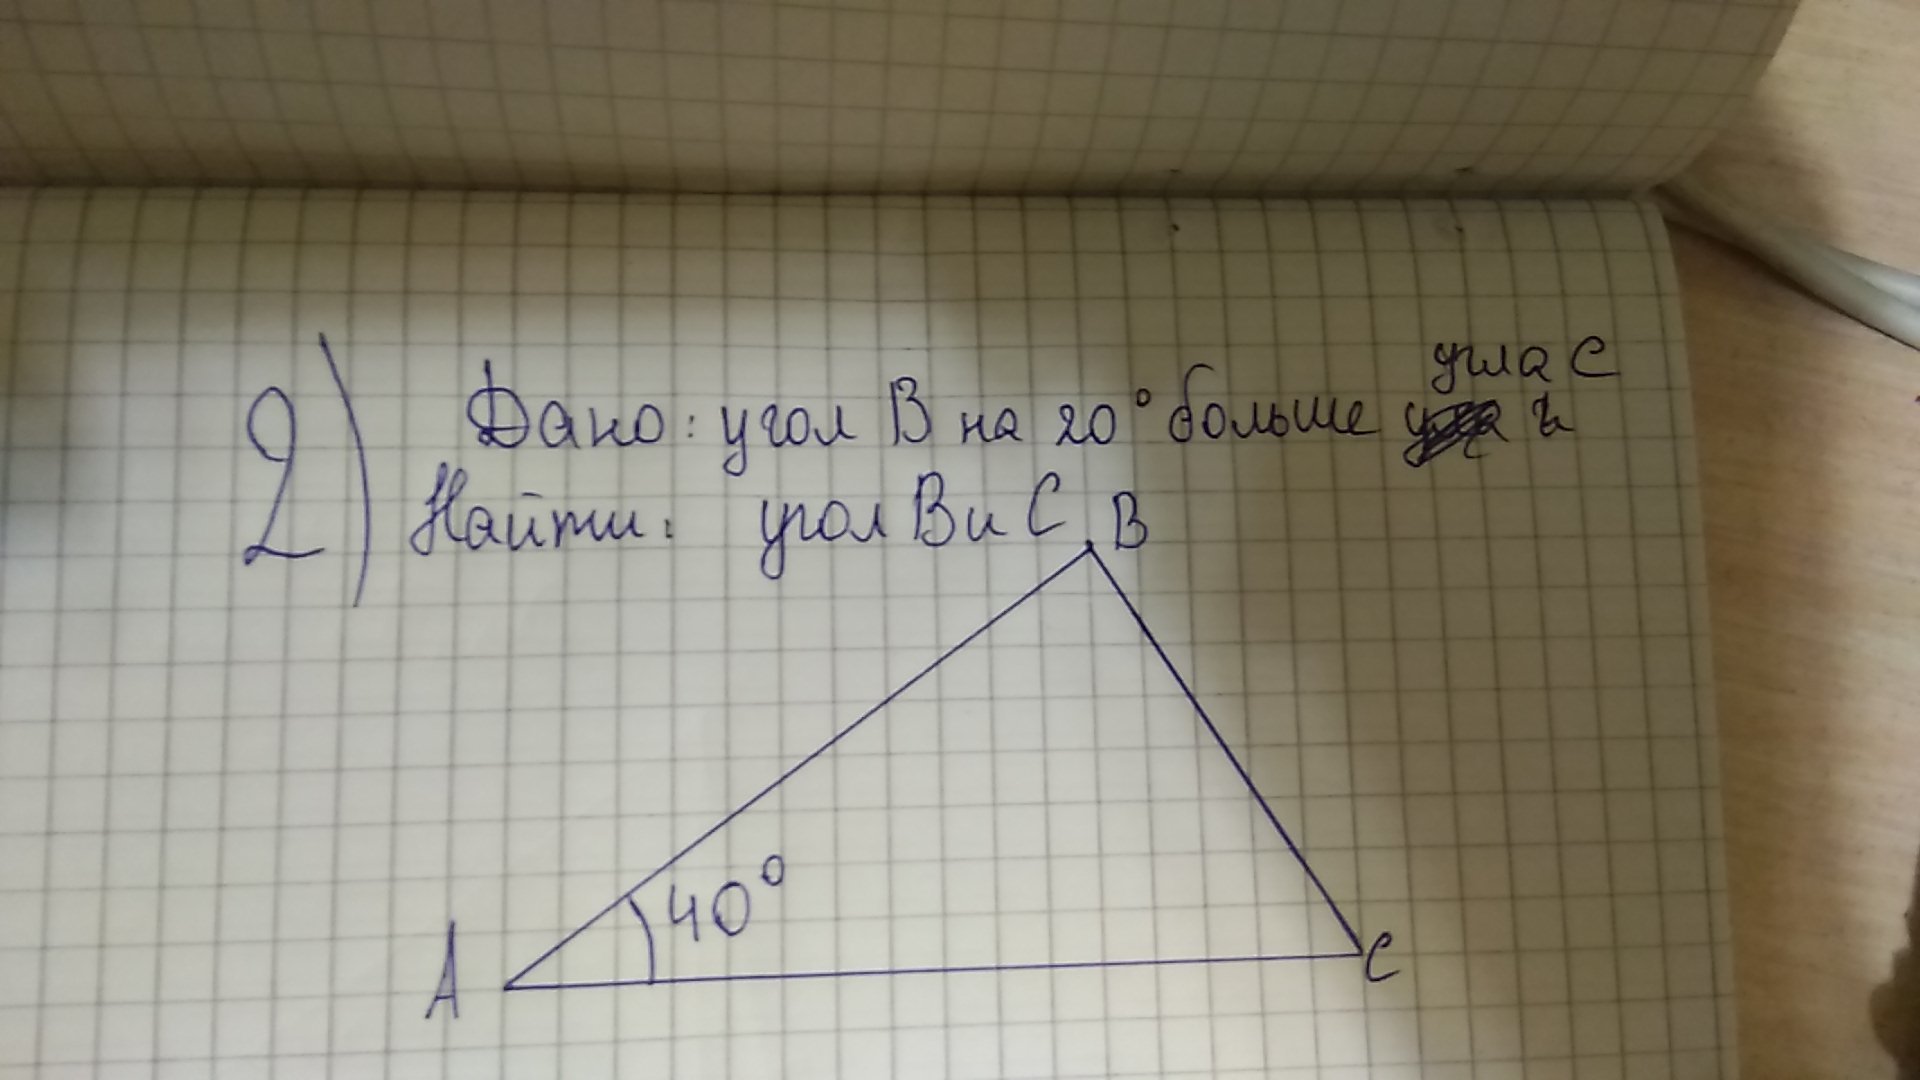 угла С
2) Дано: угол В на 20° больше
Найти: угол В и С
В
40°
А
С